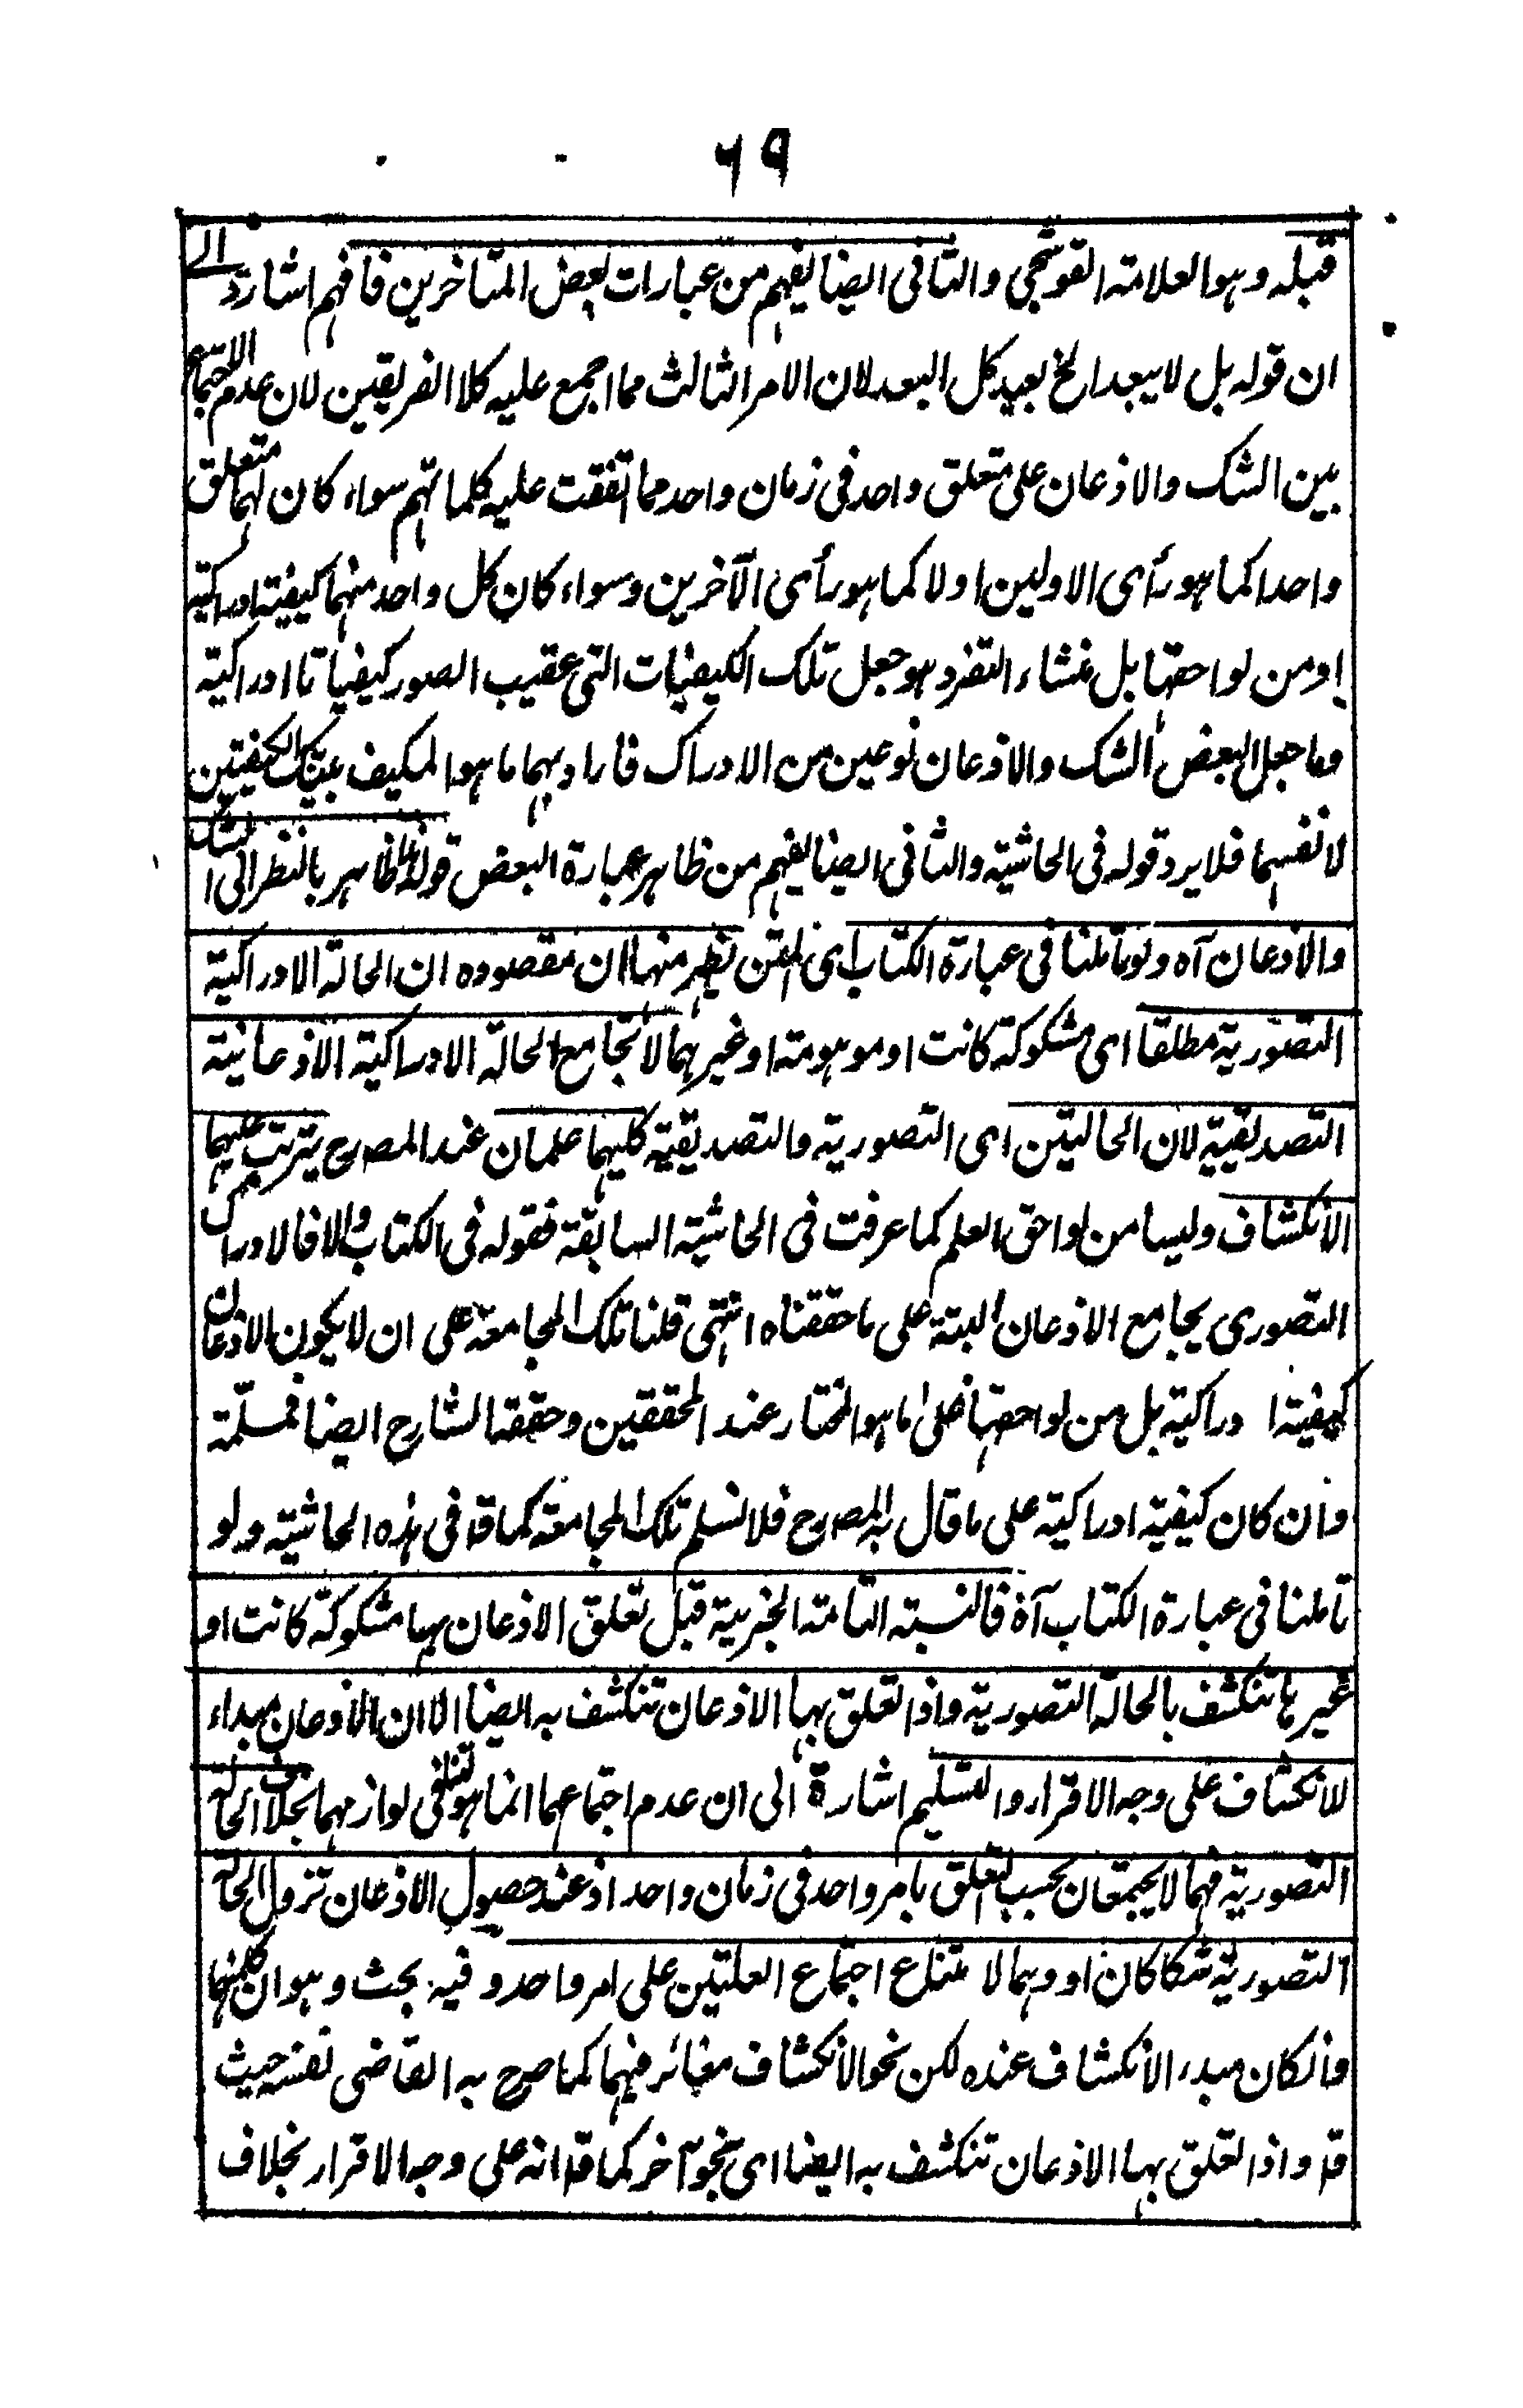 ٦٩
قبله وهو العلامة القوشجي والثاني ايضا يفهم من عبارات بعض المتأخرين فافهم اشارة الى
ان قوله بل لا يبعد الخ بعيد كل البعد لان الامر الثالث مما اجمع عليه كلا الفريقين لان عدم الاجتماع
بين الشك والاذعان على متعلق واحد في زمان واحد مما اتفقت عليه كلماتهم سواء كان لهما متعلق
واحدا كما هو رأى الاولين او لا كما هو رأى الآخرين وسواء كان كل واحد منهما كيفية ادراكية
او من لواحقها بل منشاء التفرد هو جعل تلك الكيفيات التى عقيب الصور كيفياتا ادراكية
وما جعل البعض الشك والاذعان نوعين من الادراك فاراد بهما ما هو المكيف بتينك الكيفيتين
لا نفسهما فلا يرد قوله في الحاشية والثاني ايضا يفهم من ظاهر عبارة البعض قوله فالظاهر بالنظر الى الشك
والاذعان آه ولو تأملنا في عبارة الكتاب اى المتن يظهر منها ان مقصوده ان الحالة الادراكية
التصورية مطلقا اى مشكوكة كانت او موهومة او غيرهما لا تجامع الحالة الادراكية الاذعانية
التصديقية لان الحالتين اى التصورية والتصديقية كليهما علمان عند المصرح يترتب عليهما
الانكشاف وليسا من لواحق العلم كما عرفت في الحاشية السابقة فقوله في الكتاب والا فالادراك
التصورى يجامع الاذعان البتة على ما حققناه انتهى قلنا تلك المجامعة على ان لا يكون الاذعان
كيفية ادراكية بل من لواحقها فعلى ما هو المختار عند المحققين وحققنا لشارح ايضا فمسلمة
وان كان كيفية ادراكية على ما قال به المصرح فلا نسلم تلك المجامعة كما قا في هذه الحاشية ولو
تأملنا في عبارة الكتاب آه فالنسبة التامة الخبرية قبل تعلق الاذعان بها مشكوكة كانت او
غيرها تنكشف بالحالة التصورية واذا تعلق بها الاذعان تنكشف به ايضا الا ان الاذعان مبداء
لانكشاف على وجه الاقرار والتسليم اشارة الى ان عدم اجتماعهما انما هو لتنافى لوازمهما بخلاف الحالة
التصورية فهما لا يجتمعان بحسب التعلق بامر واحد في زمان واحد اذ عند حصول الاذعان تزول الحالة
التصورية شكا كان او وهما لامتناع اجتماع العلتين على امر واحد وفيه بحث وهو ان كليهما
وانكان مبدء الانكشاف عنده لكن نحو الانكشاف مغائر فيهما كما صرح به القاضى نفسه حيث
قا واذا تعلق بها الاذعان تنكشف به ايضا اى بنحو آخر كما قا انه على وجه الاقرار بخلاف